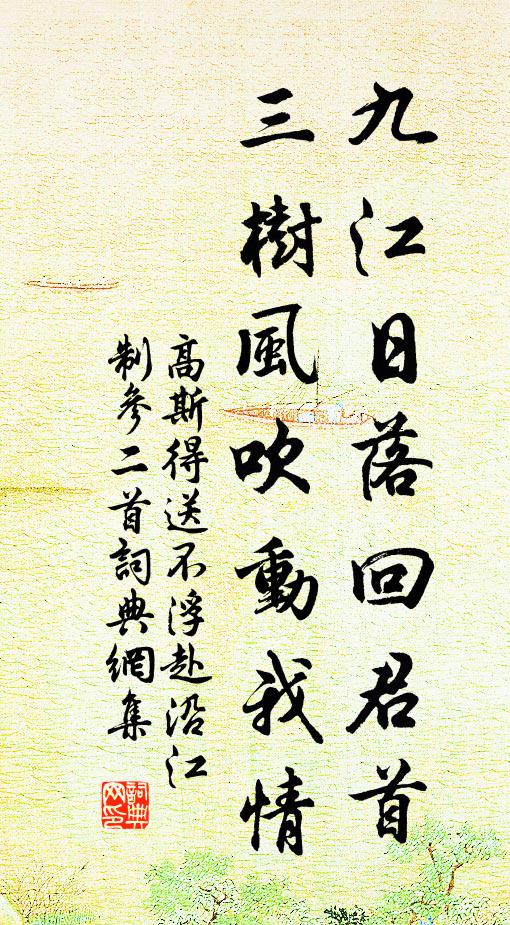 九江日落回君首
三樹風吹動我情
高斯得送不浮赴沿江
制參二首詞典網集
詞典
网印